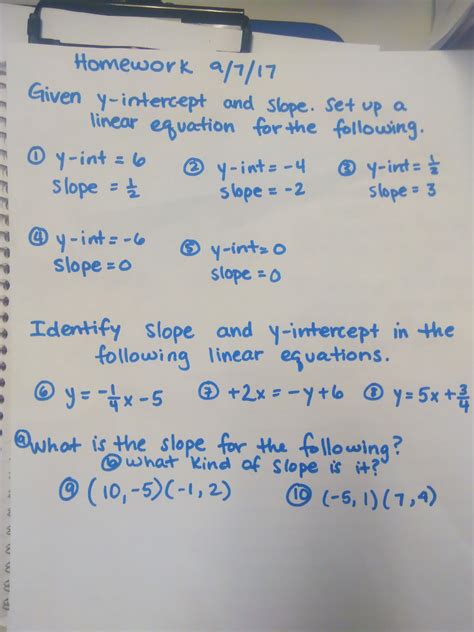 Homework 9/7/17
Given y-intercept and slope. Set up a
linear equation for the following.
① y-int = 6 ② y-int = -4 ③ y-int = 1/2
slope = 1/2 slope = -2 slope = 3
④ y-int = -6 ⑤ y-int = 0
slope = 0 slope = 0
Identify slope and y-intercept in the
following linear equations.
⑥ y = -1/4 x - 5 ⑦ +2x = -y + 6 ⑧ y = 5x + 3/4
ⓐ What is the slope for the following?
ⓑ What kind of slope is it?
⑨ (10, -5)(-1, 2) ⑩ (-5, 1)(7, 4)